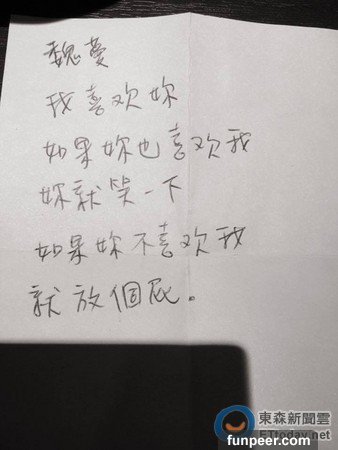 魏蔓
我喜欢妳
如果妳也喜欢我
妳就笑一下
如果妳不喜欢我
就放個屁。
東森新聞雲
ETtoday.net
funpeer.com